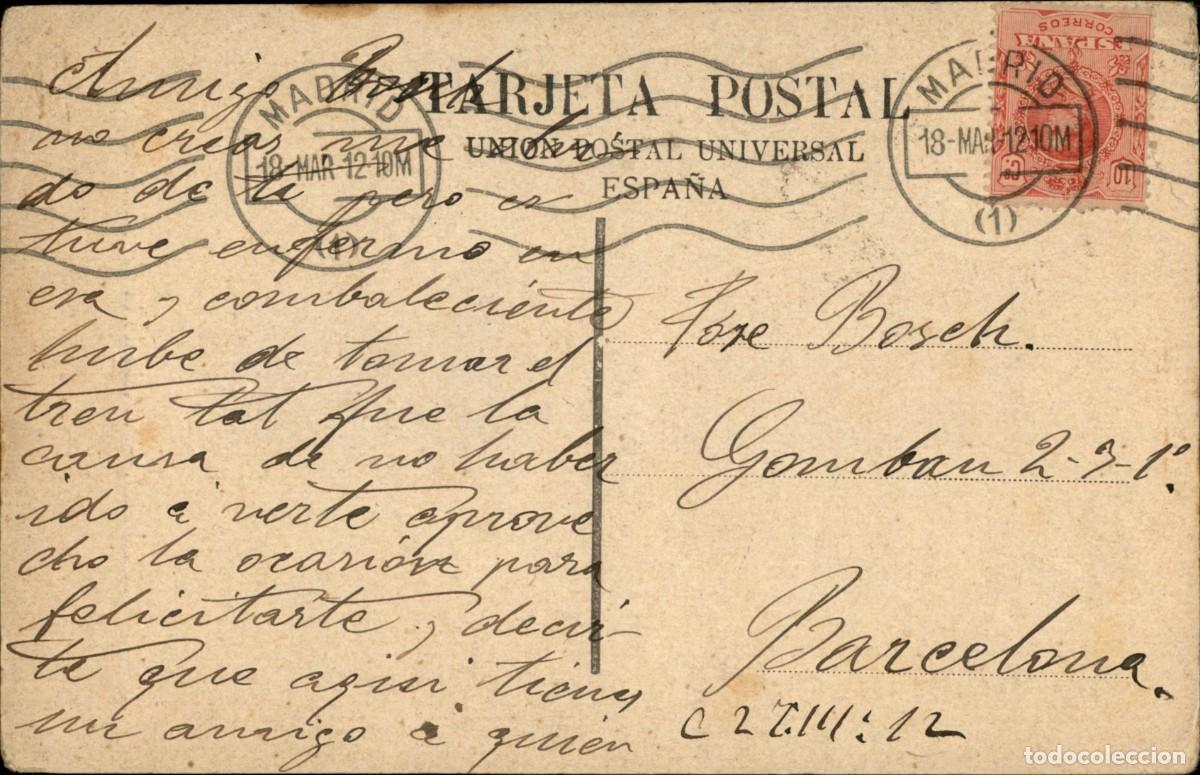 TARJETA POSTAL
UNIÓN POSTAL UNIVERSAL
ESPAÑA
ESPAÑA
CORREOS
10 Cs
MADRID
18-MAR 12·10M
(1)
MADRID
18-MAR 12·10M
(1)
Amigo Bosch
no creas me olvi
do de ti pero es
tuve enfermo en
esa y combaleciente
hube de tomar el
tren tal fue la
causa de no haber
ido a verte aprove
cho la ocasión para
felicitarte y decir-
te que aqui tienes
un amigo a quien
Jose Bosch.
Gombau 2-3-1º.
Barcelona.
C 27.III.12
todocoleccion